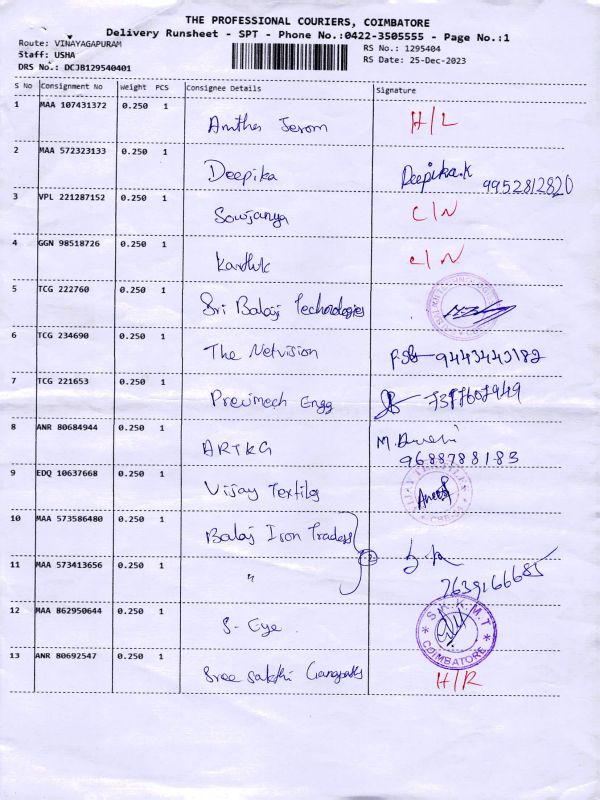 THE PROFESSIONAL COURIERS, COIMBATORE
Delivery Runsheet - SPT - Phone No.:0422-3505555 - Page No.:1
Route: VINAYAGAPURAM
Staff: USHA
DRS No.: DCJB129540401
RS No.: 1295404
RS Date: 25-Dec-2023
S No Consignment No Weight PCS Consignee Details Signature
1 MAA 107431372 0.250 1 Jerom H/L
2 MAA 572323133 0.250 1 Deepika Deepika.K 9952812820
3 VPL 221287152 0.250 1 Sowjanya C/N
4 GGN 98518726 0.250 1 Karthik C/N
5 TCG 222760 0.250 1 Sri Balaji Technologies
6 TCG 234690 0.250 1 The Netvision 9443443182
7 TCG 221653 0.250 1 Engg
8 ANR 80684944 0.250 1 ARTKG M.
9688788183
9 EDQ 10637668 0.250 1 Vijay Textiles
10 MAA 573586480 0.250 1 Balaji Iron Traders
2
11 MAA 573413656 0.250 1 "
7639166685
12 MAA 862950644 0.250 1 S-Eye S.K.K.M.T COIMBATORE
13 ANR 80692547 0.250 1 Sree Sakthi H/R